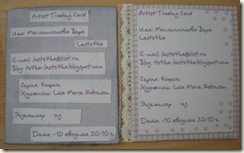 Artist Trading Card
Имя: Масленникова Варя
Lastotka
E-mail: lastotka@list.ru
Blog: totka-lastotka.blogspot.com
Серия: Кошки
Художник: Lisa Marie Robinson
Экземпляр из
Дата: 10 августа 2010 г.
Artist Trading Card
Имя: Масленникова Варя
Lastotka
E-mail: lastotka@list.ru
Blog: totka-lastotka.blogspot.com
Серия: Кошки
Художник: Lisa Marie Robinson
Экземпляр из
Дата: 10 августа 2010 г.